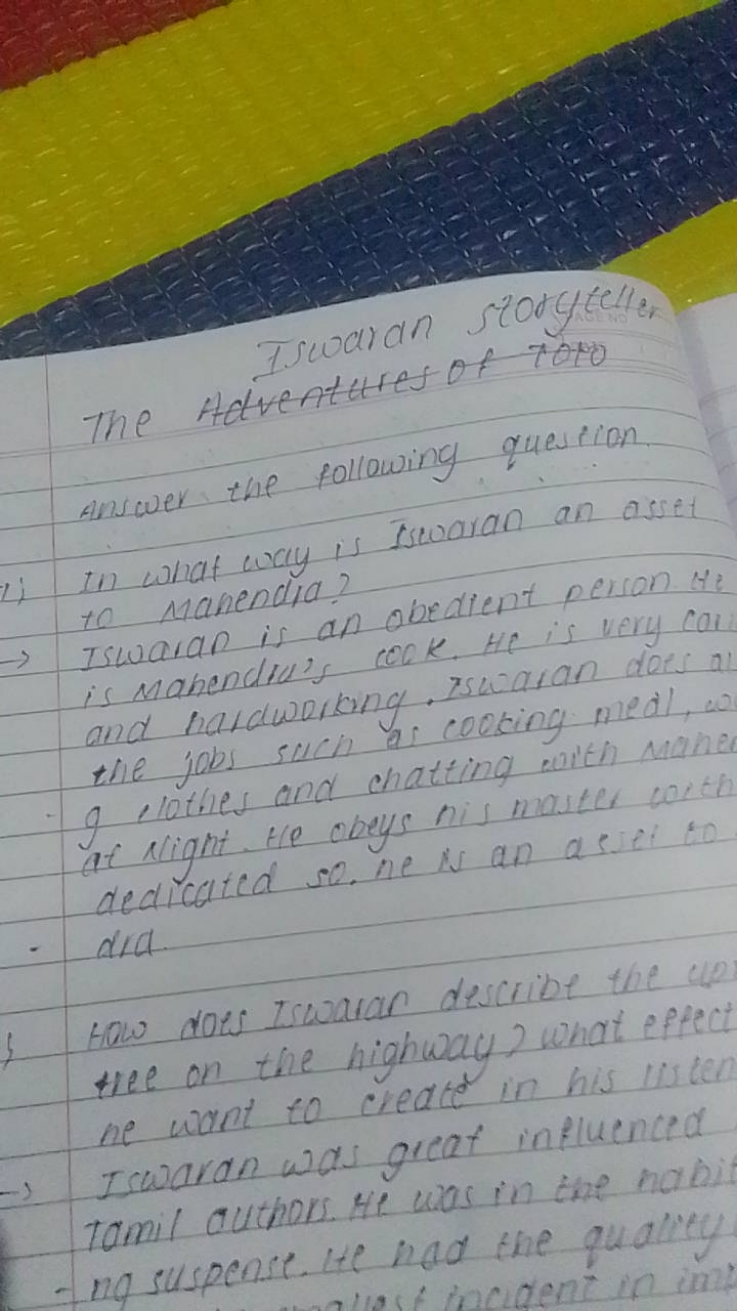 Iswaran storyteller
PAGE NO
The Adventures of Toto
Answer the following question.
1) In what way is Iswaran an asset
to Mahendra?
→ Iswaran is an obedient person. He
is Mahendra's cook. He is very
and hardworking. Iswaran does
the jobs such as cooking meal,
g clothes and chatting with
at Night. He obeys his master with
dedicated so, he is an asset to
dra.
How does Iswaran describe the
tree on the highway? what effect
he want to create in his
→ Iswaran was great influenced
Tamil authors. He was in the habit
ng suspense. He had the quality
incident in